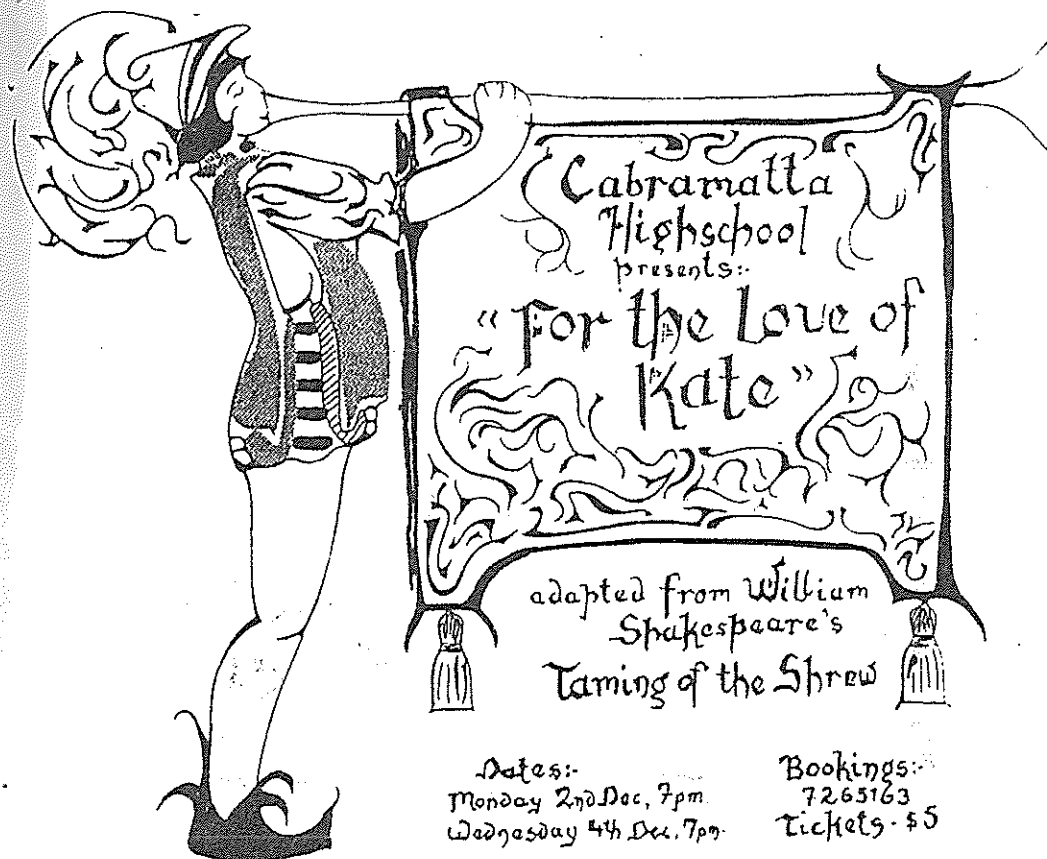 Cabramatta
Highschool
presents:-
"For the Love of
Kate"
adapted from William
Shakespeare's
Taming of the Shrew
Dates:-
Monday 2nd Dec, 7pm
Wednesday 4th Dec, 7pm.
Bookings:-
7265163
Tickets - $5